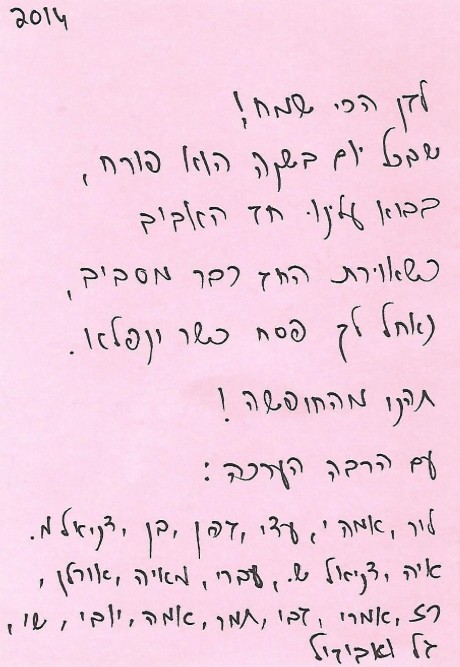 2014
לגן הכי שמח!
שבכל יום בשנה הוא פורח,
בבוא עלינו חג האביב
כשאוירת החג כבר מסביב,
נאחל לך פסח כשר ונפלא.
תהנו מהחופשה!
עם הרבה הערכה:
ליר, אמה י, עדי, דפן, בן, דניאל מ.
איה, דניאל ש, עברי, מאיה, אורלן,
רז, אמרי, דבי, תמר, אמה, יובי, שי,
גל ואבידיל